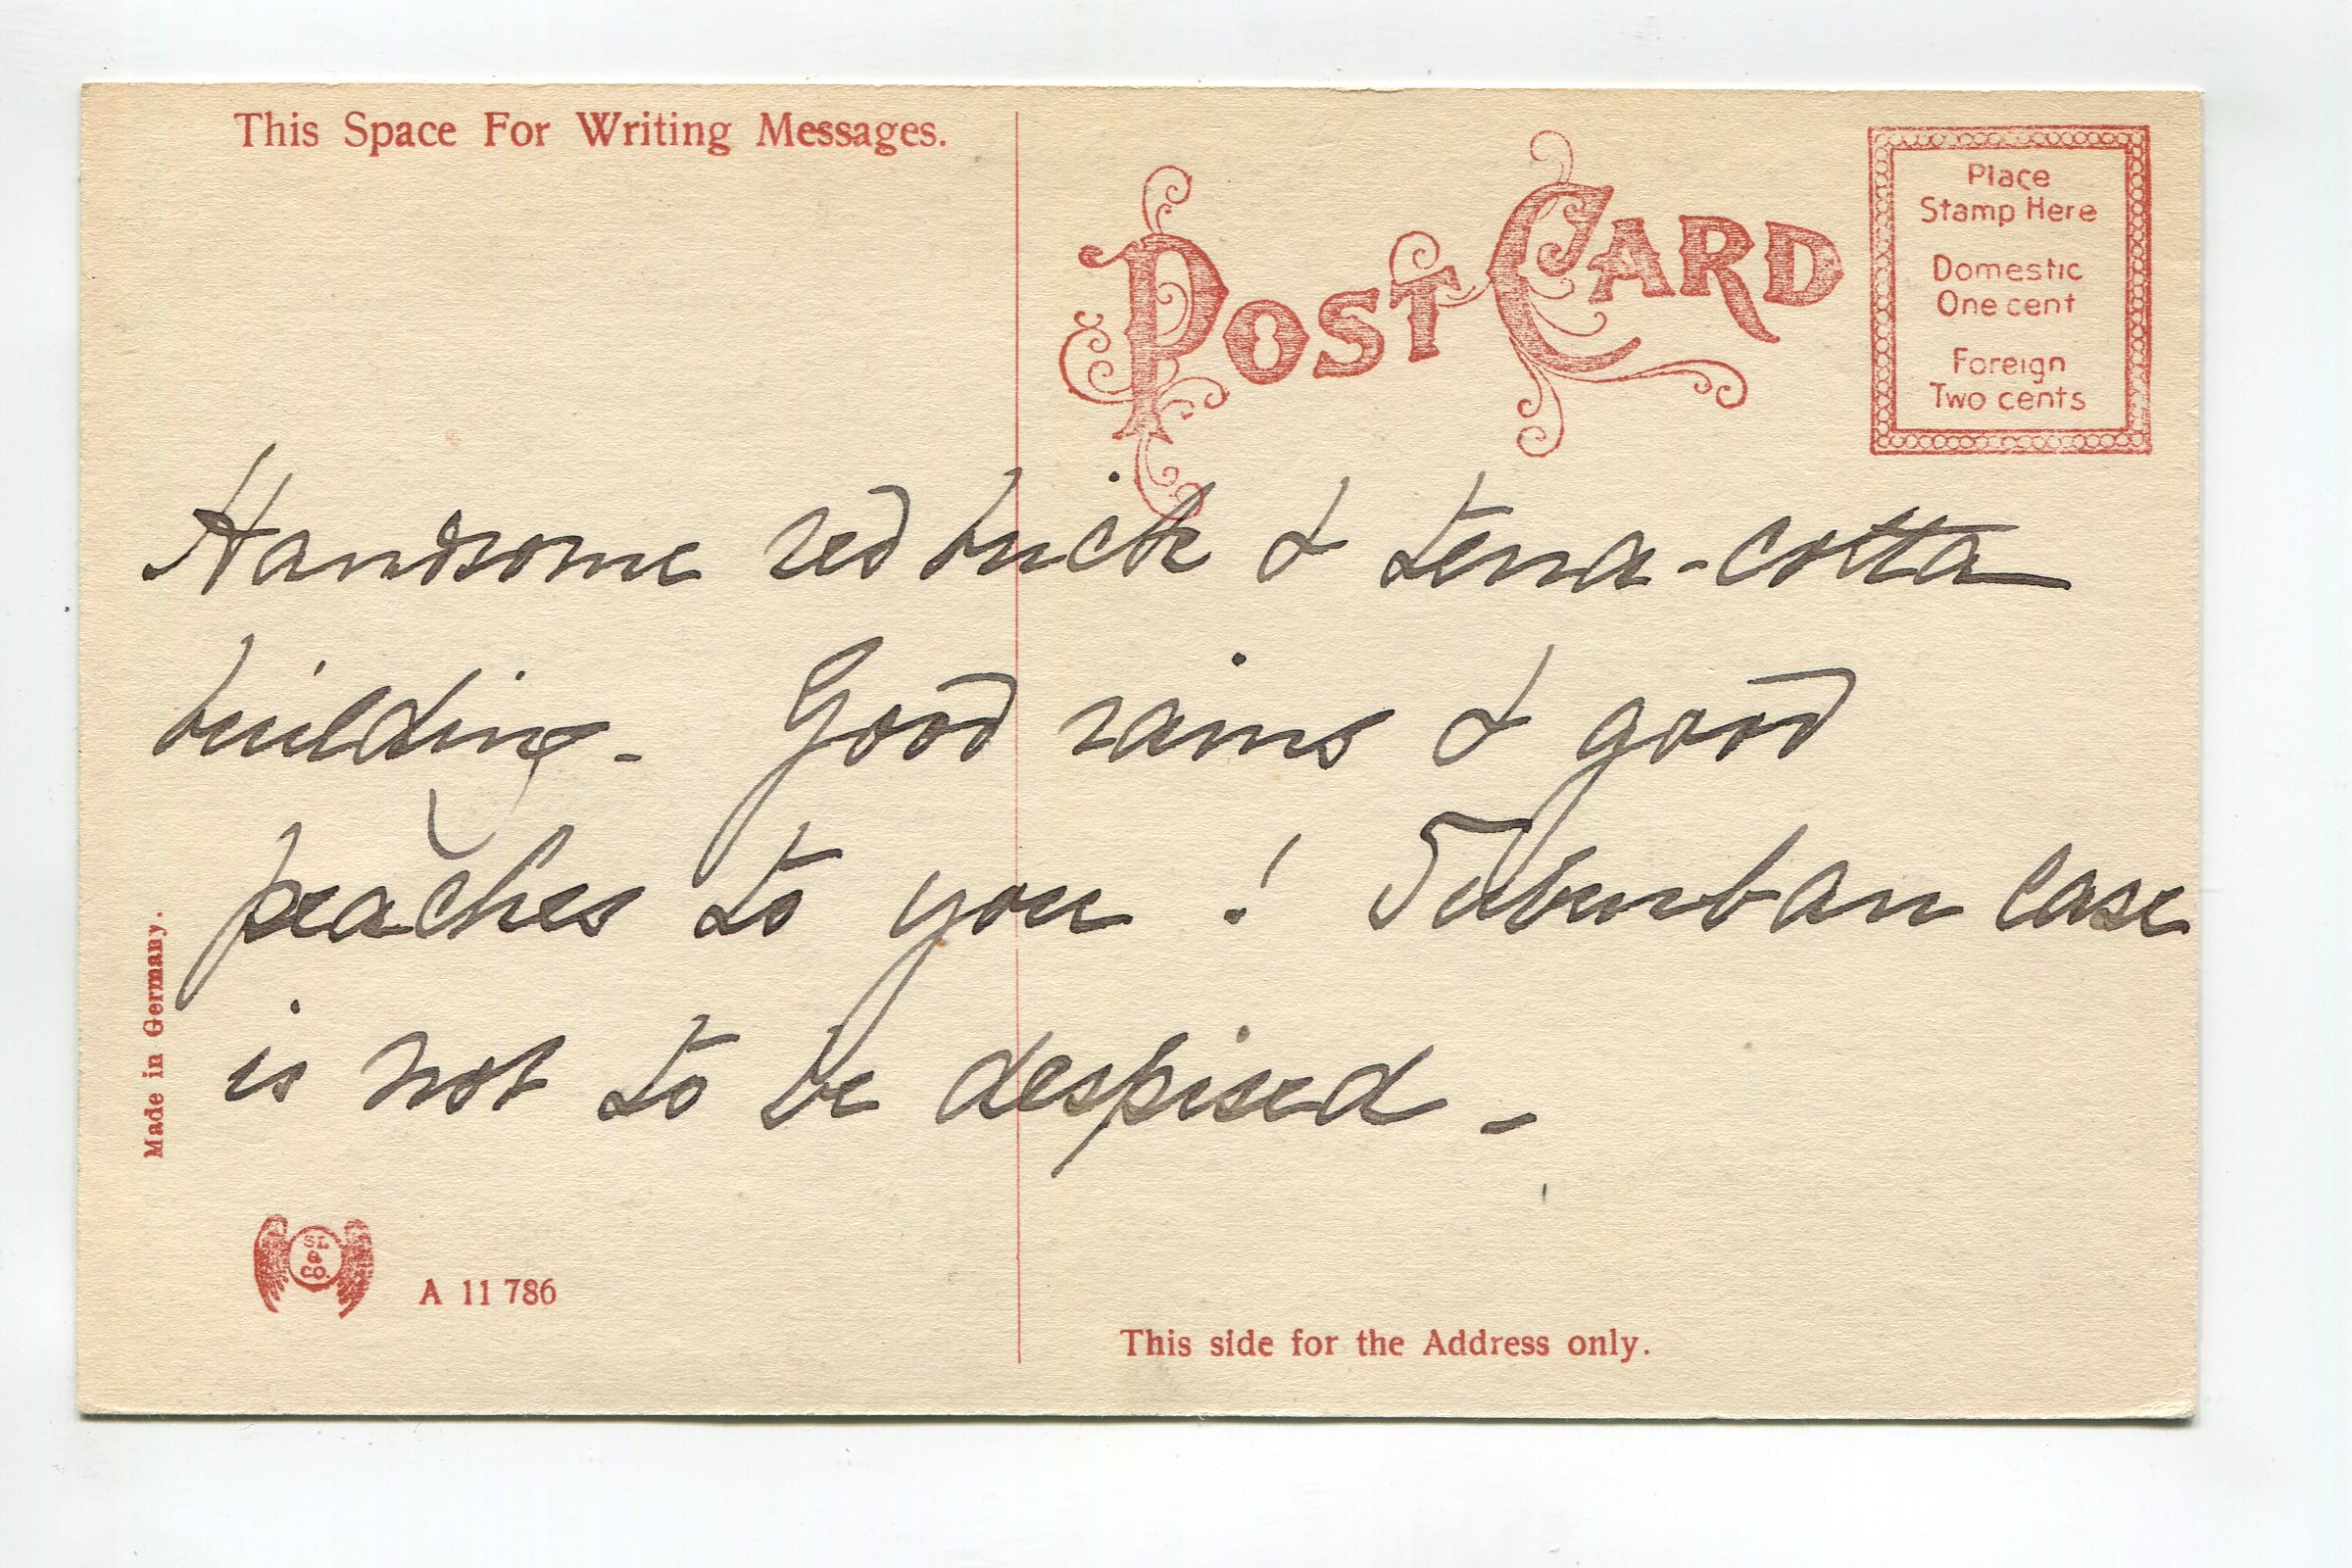 This Space For Writing Messages.
POST CARD
Place
Stamp Here
Domestic
One cent
Foreign
Two cents
Handsome red brick & terra-cotta
building - Good rains & good
peaches to you! Suburban case
is not to be despised -
Made in Germany.
SL
&
CO.
A 11 786
This side for the Address only.